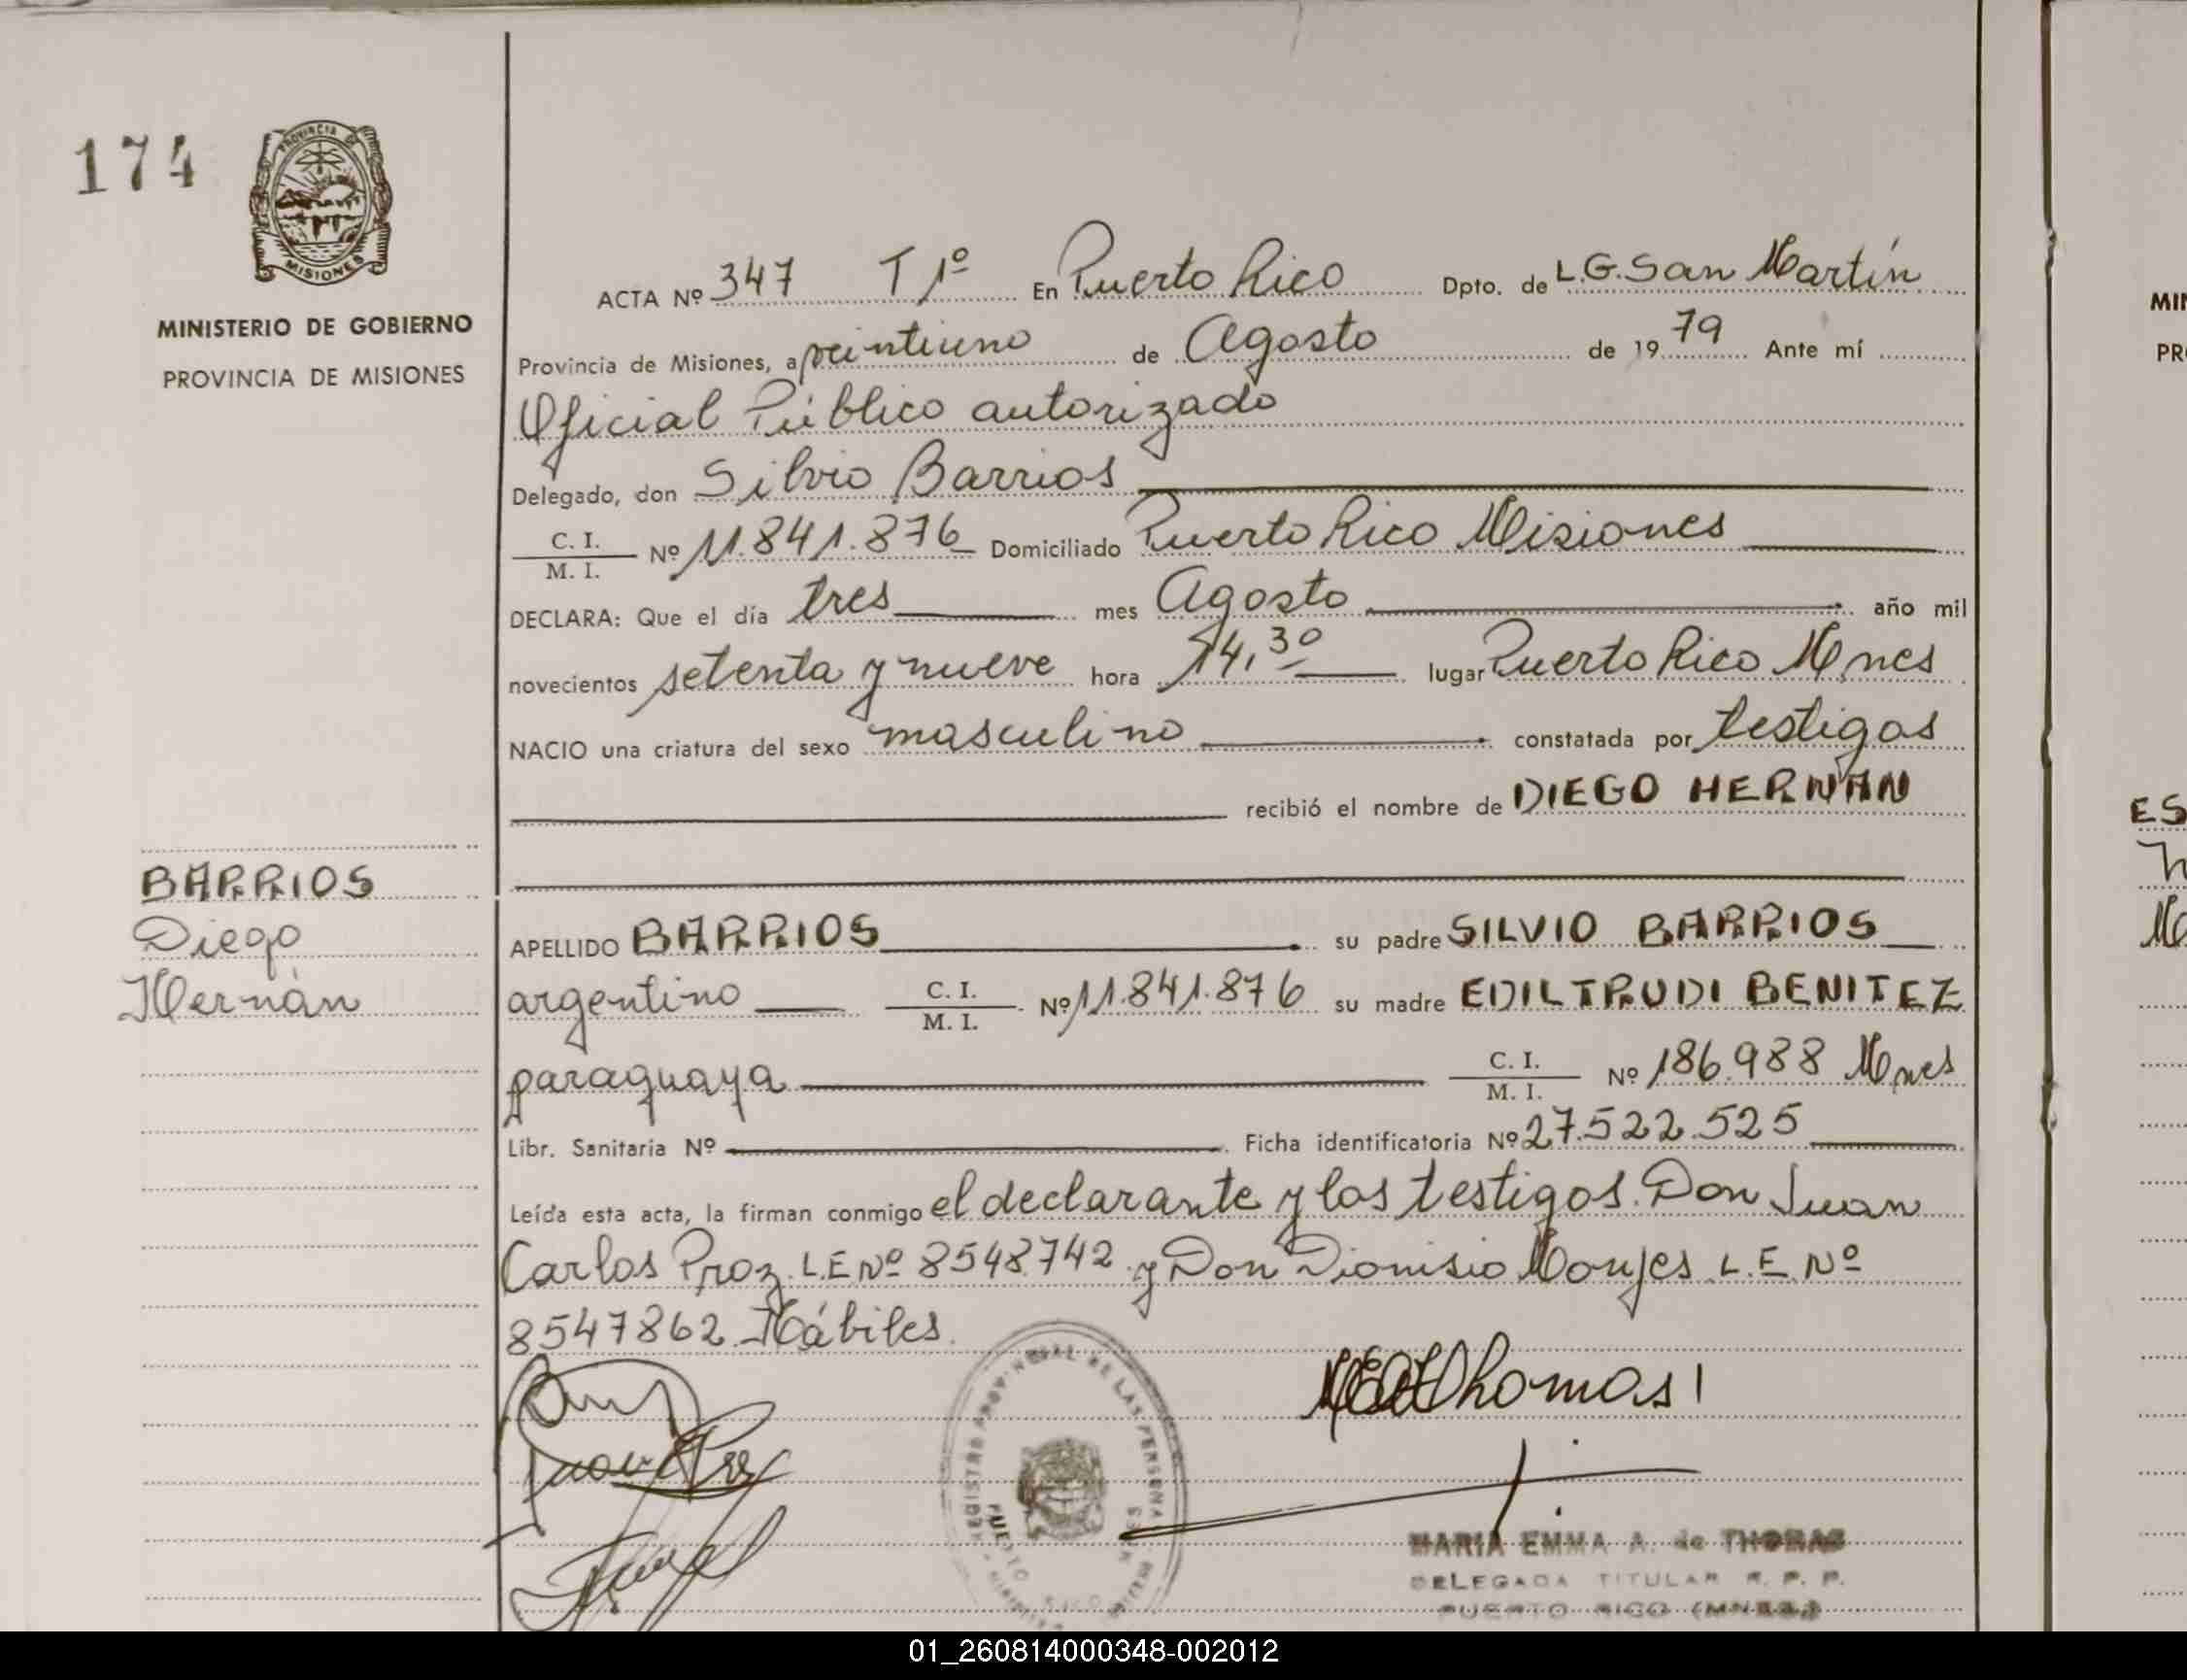 174
PROVINCIA DE
MISIONES
MINISTERIO DE GOBIERNO
PROVINCIA DE MISIONES
ACTA Nº 347 T 1º En Puerto Rico Dpto. de L.G. San Martín
Provincia de Misiones, a veintiuno de Agosto de 1979 Ante mí
Oficial Público autorizado
Delegado, don Silvio Barrios
C. I. / M. I. Nº 11.841.876 Domiciliado Puerto Rico Misiones
DECLARA: Que el día tres mes Agosto año mil
novecientos setenta y nueve hora 14,30 lugar Puerto Rico Mnes
NACIO una criatura del sexo masculino constatada por testigos
recibió el nombre de DIEGO HERNAN
BARRIOS
Diego
Hernán
APELLIDO BARRIOS su padre SILVIO BARRIOS
argentino C. I. / M. I. Nº 11.841.876 su madre EDILTRUDI BENITEZ
paraguaya C. I. / M. I. Nº 186.988 Mnes
Libr. Sanitaria Nº Ficha identificatoria Nº 27.522.525
Leída esta acta, la firman conmigo el declarante y los testigos. Don Juan
Carlos Proz L.E Nº 8548742 y Don Dionisio Monjes L.E. Nº
8547862 Hábiles.
Thomas
REGISTRO PROVINCIAL DE LAS PERSONAS
PUERTO RICO
MARIA EMMA A. de THOMAS
DELEGADA TITULAR R. P. P.
PUERTO RICO (MNES.)
MIN
PR
ES
01_260814000348-002012